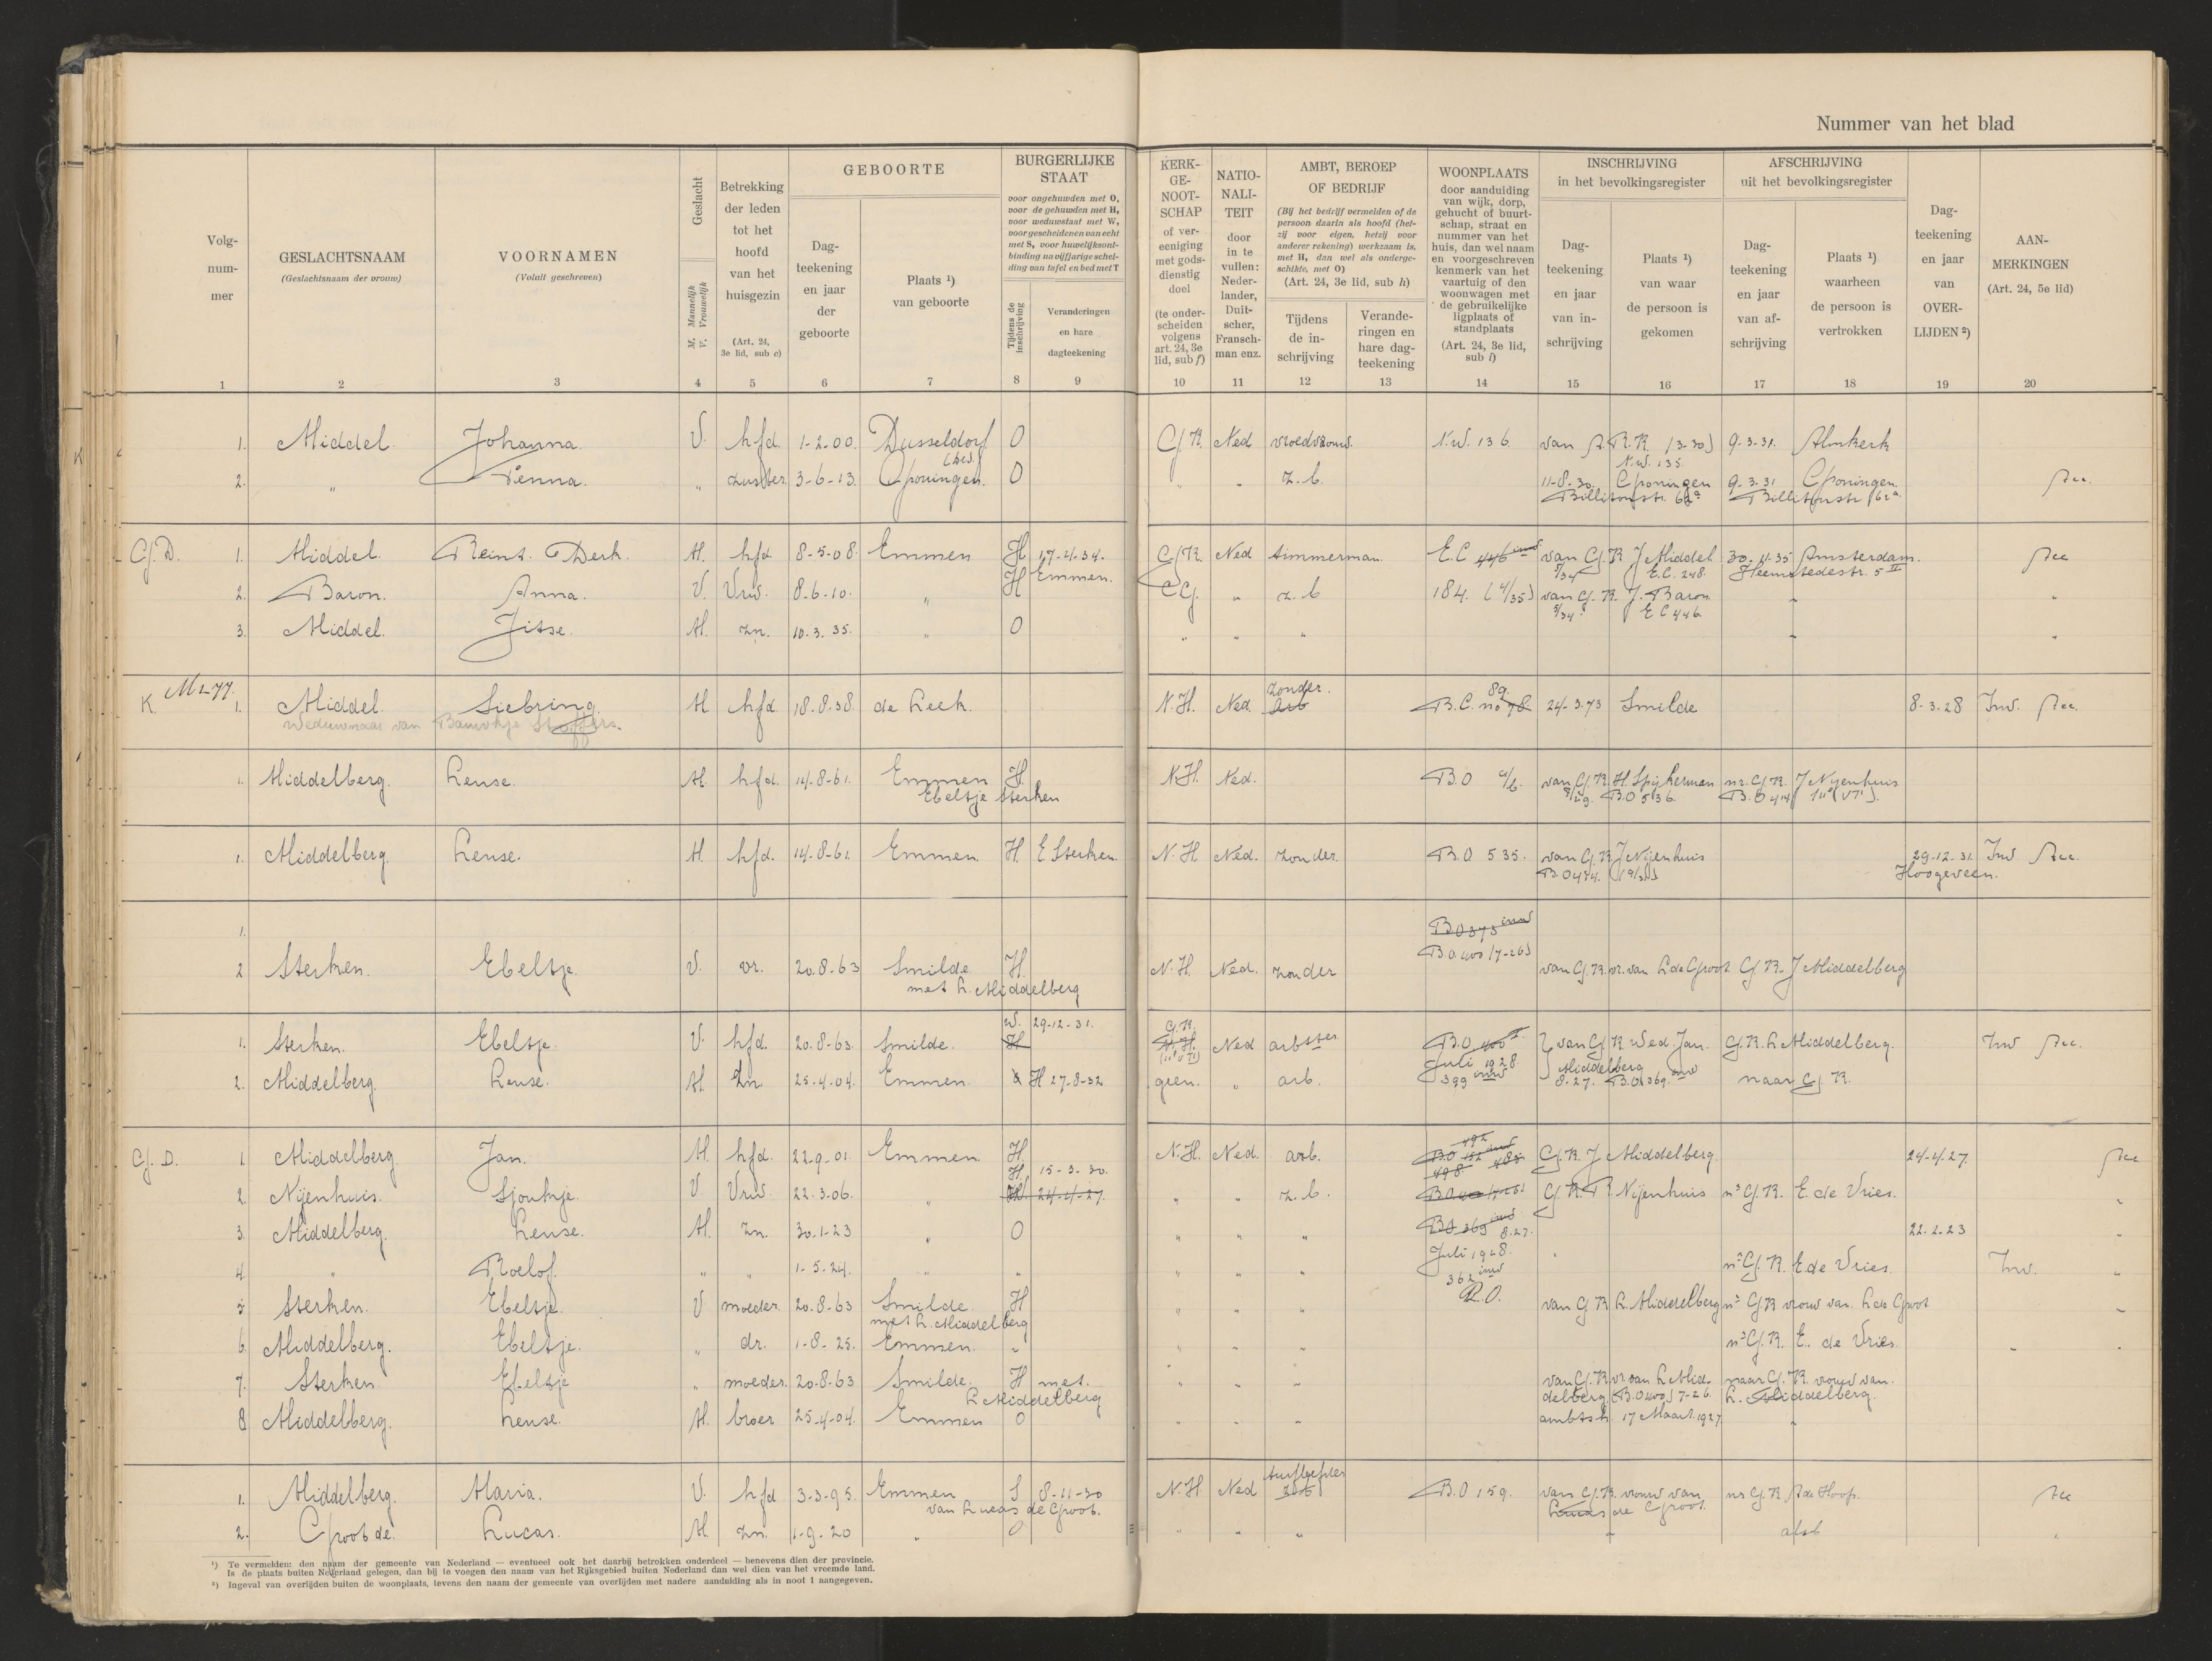 Nummer van het blad
Volg-
num-
mer
GESLACHTSNAAM
(Geslachtsnaam der vrouw)
VOORNAMEN
(Voluit geschreven)
Geslacht
M. Mannelijk
V. Vrouwelijk
Betrekking
der leden
tot het
hoofd
van het
huisgezin
(Art. 24,
3e lid, sub c)
GEBOORTE
Dag-
teekening
en jaar
der
geboorte
Plaats ¹)
van geboorte
BURGERLIJKE
STAAT
voor ongehuwden met O,
voor de gehuwden met H,
voor weduwstaat met W,
voor gescheidenen van echt
met S, voor huwelijksont-
binding na vijfjarige schei-
ding van tafel en bed met T
Tijdens de
inschrijving
Veranderingen
en hare
dagteekening
KERK-
GE-
NOOT-
SCHAP
of ver-
eeniging
met gods-
dienstig
doel
(te onder-
scheiden
volgens
art. 24, 3e
lid, sub f)
NATIO-
NALI-
TEIT
door
in te
vullen:
Neder-
lander,
Duit-
scher,
Fransch-
man enz.
AMBT, BEROEP
OF BEDRIJF
(Bij het bedrijf vermelden of de
persoon daarin als hoofd (het-
zij voor eigen, hetzij voor
anderer rekening) werkzaam is,
met H, dan wel als onderge-
schikte, met O)
(Art. 24, 3e lid, sub h)
Tijdens
de in-
schrijving
Verande-
ringen en
hare dag-
teekening
WOONPLAATS
door aanduiding
van wijk, dorp,
gehucht of buurt-
schap, straat en
nummer van het
huis, dan wel naam
en voorgeschreven
kenmerk van het
vaartuig of den
woonwagen met
de gebruikelijke
ligplaats of
standplaats
(Art. 24, 3e lid,
sub i)
INSCHRIJVING
in het bevolkingsregister
Dag-
teekening
en jaar
van in-
schrijving
Plaats ¹)
van waar
de persoon is
gekomen
AFSCHRIJVING
uit het bevolkingsregister
Dag-
teekening
en jaar
van af-
schrijving
Plaats ¹)
waarheen
de persoon is
vertrokken
Dag-
teekening
en jaar
van
OVER-
LIJDEN ²)
AAN-
MERKINGEN
(Art. 24, 5e lid)
1 2 3 4 5 6 7 8 9 10 11 12 13 14 15 16 17 18 19 20
1. Middel. Johanna. V. hfd. 1-2-00. Dusseldorf O G.K. Ned vroedvrouw. N.w. 136. van A.R.K. (3-30) 9-3-31. Almkerk
N.w. 135.
2. " Tenna. " zuster 3-6-13. Groningen. O " " z.b. 11-8-30. Groningen 9-3-31 Groningen.
Billitonstr. 62a Billitonstr 62a
G.D. 1. Middel. Reint. Derk. M. hfd 8-5-08. Emmen H 17-4-34. G.K. Ned timmerman. E.C 446 inw van G.K J Middel 30-11-35 Amsterdam.
Emmen. 5/34 E.C. 248. Heemstedestr. 5 II
2. Baron. Anna. V. Vrw. 8.6.10. " H C.G. " z.b 184. (4/35) van G.K. J. Baron " "
5/34 E C 446
3. Middel. Jitse. M. zn. 10.3.35. " O " " " " "
K. M 277. 1. Middel. Siebring. M hfd 18.8.38. de Leek. N.H. Ned. zonder. arb B.C. no 78 89. 24-3-73 Smilde 8-3-28 Inw.
weduwnaar van Bouwkje Stoffers.
1. Middelberg. Leuse. M. hfd. 14-8-61. Emmen H. N.H. Ned. B.O van G.K. H. Spijkerman nr. G.K. J Nijenhuis
Ebeltje Sterken B.O 536.
1. Middelberg. Leuse. M. hfd. 14-8-61. Emmen. H. E Sterken. N.H. Ned. zonder. B.O 535. van G.K. J Nijenhuis 29-12-31. Inw
Hoogeveen.
1.
B.O 373 inw
B.O 400 (7-26)
2 Sterken. Ebeltje. V. vr. 20.8-63 Smilde H. N.H. Ned. zonder van G.K. vr. van L de Groot G.K. J Middelberg
met L. Middelberg
W. 29-12-31.
1. Sterken. Ebeltje. V. hfd. 20.8-63. Smilde. H G.K. N.H. Ned arbster B.O. 400 van G.K Wed. Jan. G.K. L Middelberg. Inw
Juli 1928 Middelberg
2. Middelberg. Leuse. M zn. 25-4-04. Emmen. H 27-8-32 geen. " arb. 399 inw 8-27. B.O. 369. inw naar G.K.
G.D. 1. Middelberg Jan. M. hfd. 22-9-01. Emmen. H. N.H. Ned. arb. B.O 152 inw 492 485 498 G.K. J Middelberg. 24-4-27.
H. 15-3-30.
2. Nijenhuis. Sjoukje. V. Vrw. 22.3-06. " W 24-4-27. " " z.b. B.O 400 (7-26) G.K. R Nijenhuis nr G.K. E. de Vries. "
3. Middelberg. Leuse. M. zn. 30-1-23 " O " " " B.O 369 inw 8.27. 22-2-23 "
Juli 1928.
4. " Roelof. " " 1-5-24. " " " " " 362 inw nr G.K. E de Vries. Inw. "
B.O.
5. Sterken. Ebeltje V moeder. 20.8-63 Smilde. H " " " van G.K L. Middelberg nr G.K vrouw van L de Groot "
met L. Middelberg
6. Middelberg. Ebeltje. " dr. 1-8-25. Emmen. " " " " nr G.K. E. de Vries. " "
7. Sterken Ebeltje " moeder. 20.8-63 Smilde. H met. " " " van G.K vr. van L Mid- naar G.K. vrouw van.
L Middelberg delberg (B.O 400) 7-26. L. Middelberg.
8 Middelberg. Leuse. M. broer 25-4-04. Emmen O " " " ambtsh. 17 Maart 1927 "
1. Middelberg. Maria. V. hfd 3-3-95. Emmen S 8-11-30 N.H. Ned B.O 159. van G.K. vrouw van nr G.K A de Hoop.
van Lucas de Groot. Lucas de Groot.
2. Groot de. Lucas. M. zn. 1-9-20 " O " " " "
¹) Te vermelden: den naam der gemeente van Nederland — eventueel ook het daarbij betrokken onderdeel — benevens dien der provincie.
Is de plaats buiten Nederland gelegen, dan bij te voegen den naam van het Rijksgebied buiten Nederland dan wel dien van het vreemde land.
²) Ingeval van overlijden buiten de woonplaats, tevens den naam der gemeente van overlijden met nadere aanduiding als in noot 1 aangegeven.